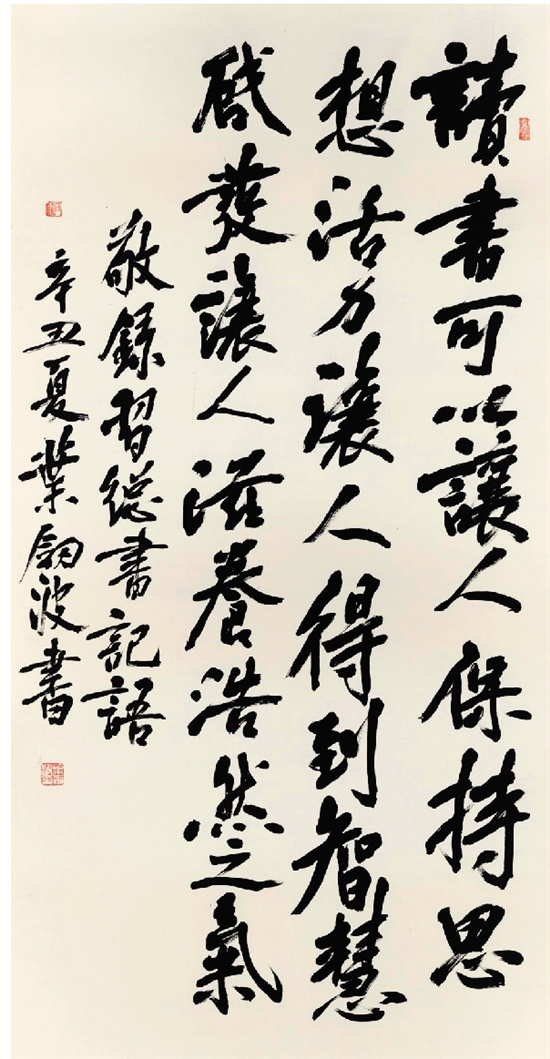 讀書可以讓人保持思
想活力讓人得到智慧
啟發讓人滋養浩然之氣
敬錄習總書記語
辛丑夏葉翷波書